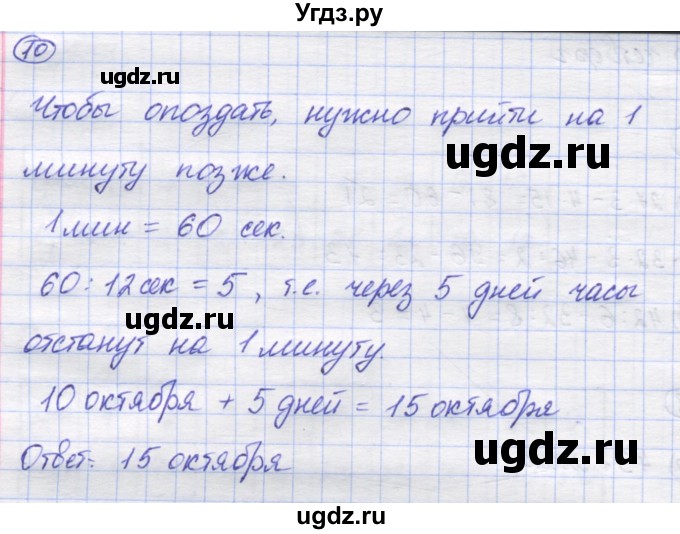 Угдз.ру
10
ugdz.ru
Чтобы опоздать, нужно прийти на 1
ugdz.ru
минуту позже.
1 мин = 60 сек.
ugdz.ru
60 : 12 сек = 5, т.е. через 5 дней часы
ugdz.ru
отстанут на 1 минуту.
ugdz.ru
10 октября + 5 дней = 15 октября
ugdz.ru
Ответ: 15 октября
ugdz.ru